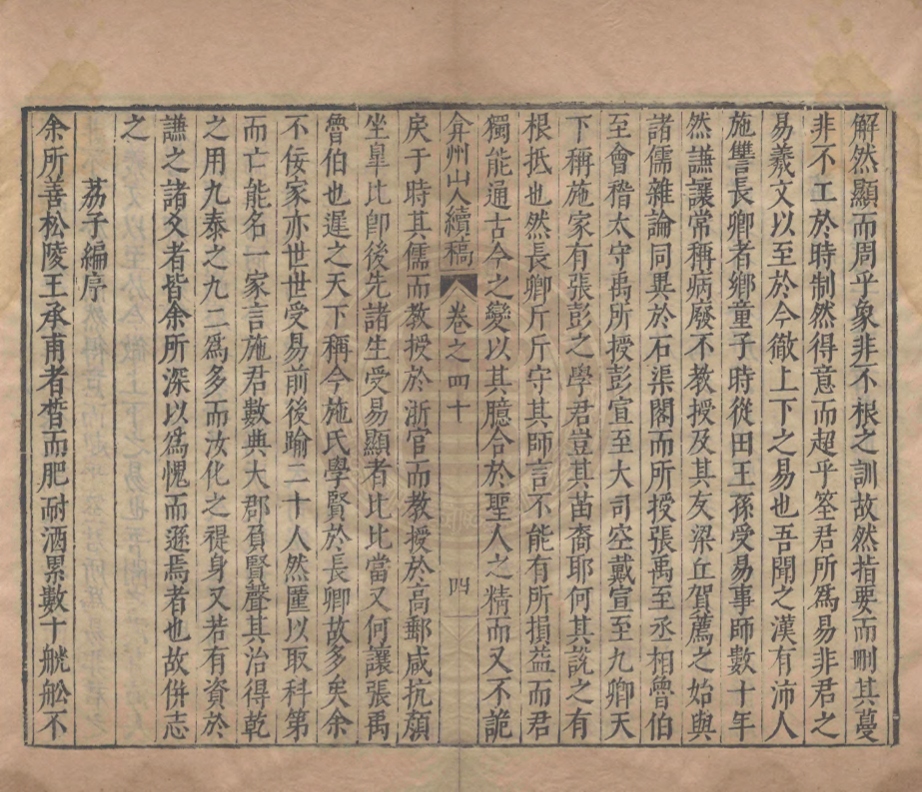 解然顯而周乎象非不根之訓故然指要而刪其蔓
非不工於時制然得意而超乎筌君所爲易非君之
易羲文以至於今徹上下之易也吾聞之漢有沛人
施讐長卿者鄉童子時從田王孫受易事師數十年
然謙讓常稱病廢不教授及其友梁丘賀薦之始與
諸儒雜論同異於石渠閣而所授張禹至丞相魯伯
至會稽太守禹所授彭宣至大司空戴宣至九卿天
下稱施家有張彭之學君豈其苗裔耶何其說之有
根抵也然長卿斤斤守其師言不能有所損益而君
獨能通古今之變以其臆合於聖人之精而又不詭
弇州山人續稿 卷之四十 四
戾于時其儒而教授於浙官而教授於高郵咸抗顏
坐皐比卽後先諸生受易顯者比比當又何讓張禹
魯伯也遲之天下稱今施氏學賢於長卿故多矣余
不佞家亦世世受易前後踰二十人然厪以取科第
而亡能名一家言施君數典大郡負賢聲其治得乾
之用九泰之九二爲多而汝化之禔身又若有資於
謙之諸爻者皆余所深以爲愧而遜焉者也故併志
之
荔子編序
余所善松陵王承甫者晳而肥耐酒累數十觥舩不